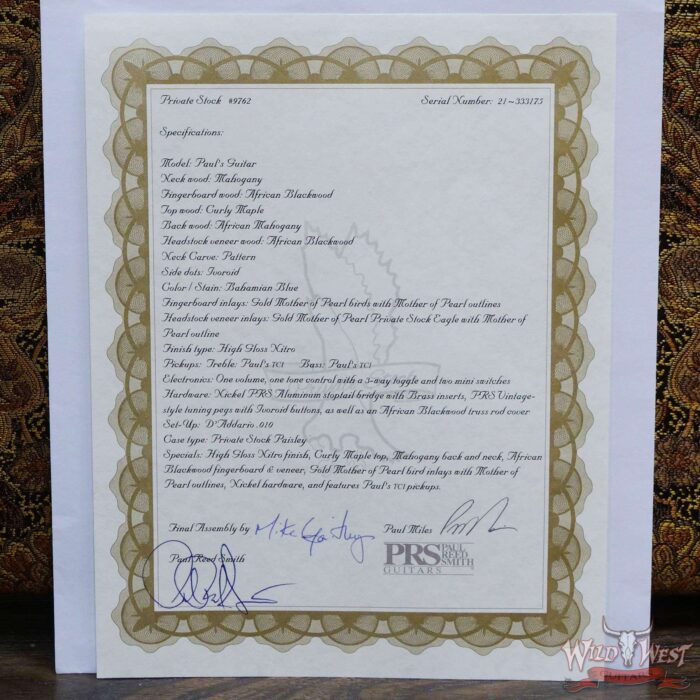 Private Stock #9762 Serial Number: 21~333175
Specifications:
Model: Paul's Guitar
Neck wood: Mahogany
Fingerboard wood: African Blackwood
Top wood: Curly Maple
Back wood: African Mahogany
Headstock veneer wood: African Blackwood
Neck Carve: Pattern
Side dots: Ivoroid
Color / Stain: Bahamian Blue
Fingerboard inlays: Gold Mother of Pearl birds with Mother of Pearl outlines
Headstock veneer inlays: Gold Mother of Pearl Private Stock Eagle with Mother of
Pearl outline
Finish type: High Gloss Nitro
Pickups: Treble: Paul's TCI Bass: Paul's TCI
Electronics: One volume, one tone control with a 3-way toggle and two mini switches
Hardware: Nickel PRS Aluminum stoptail bridge with Brass inserts, PRS Vintage-
style tuning pegs with Ivoroid buttons, as well as an African Blackwood truss rod cover
Set-Up: D'Addario .010
Case type: Private Stock Paisley
Specials: High Gloss Nitro finish, Curly Maple top, Mahogany back and neck, African
Blackwood fingerboard & veneer, Gold Mother of Pearl bird inlays with Mother of
Pearl outlines, Nickel hardware, and features Paul's TCI pickups.
Final Assembly by Paul Miles
Paul Reed Smith
PRS PAUL
REED
SMITH
GUITARS
WILD WEST
GUITARS